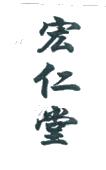 宏仁堂